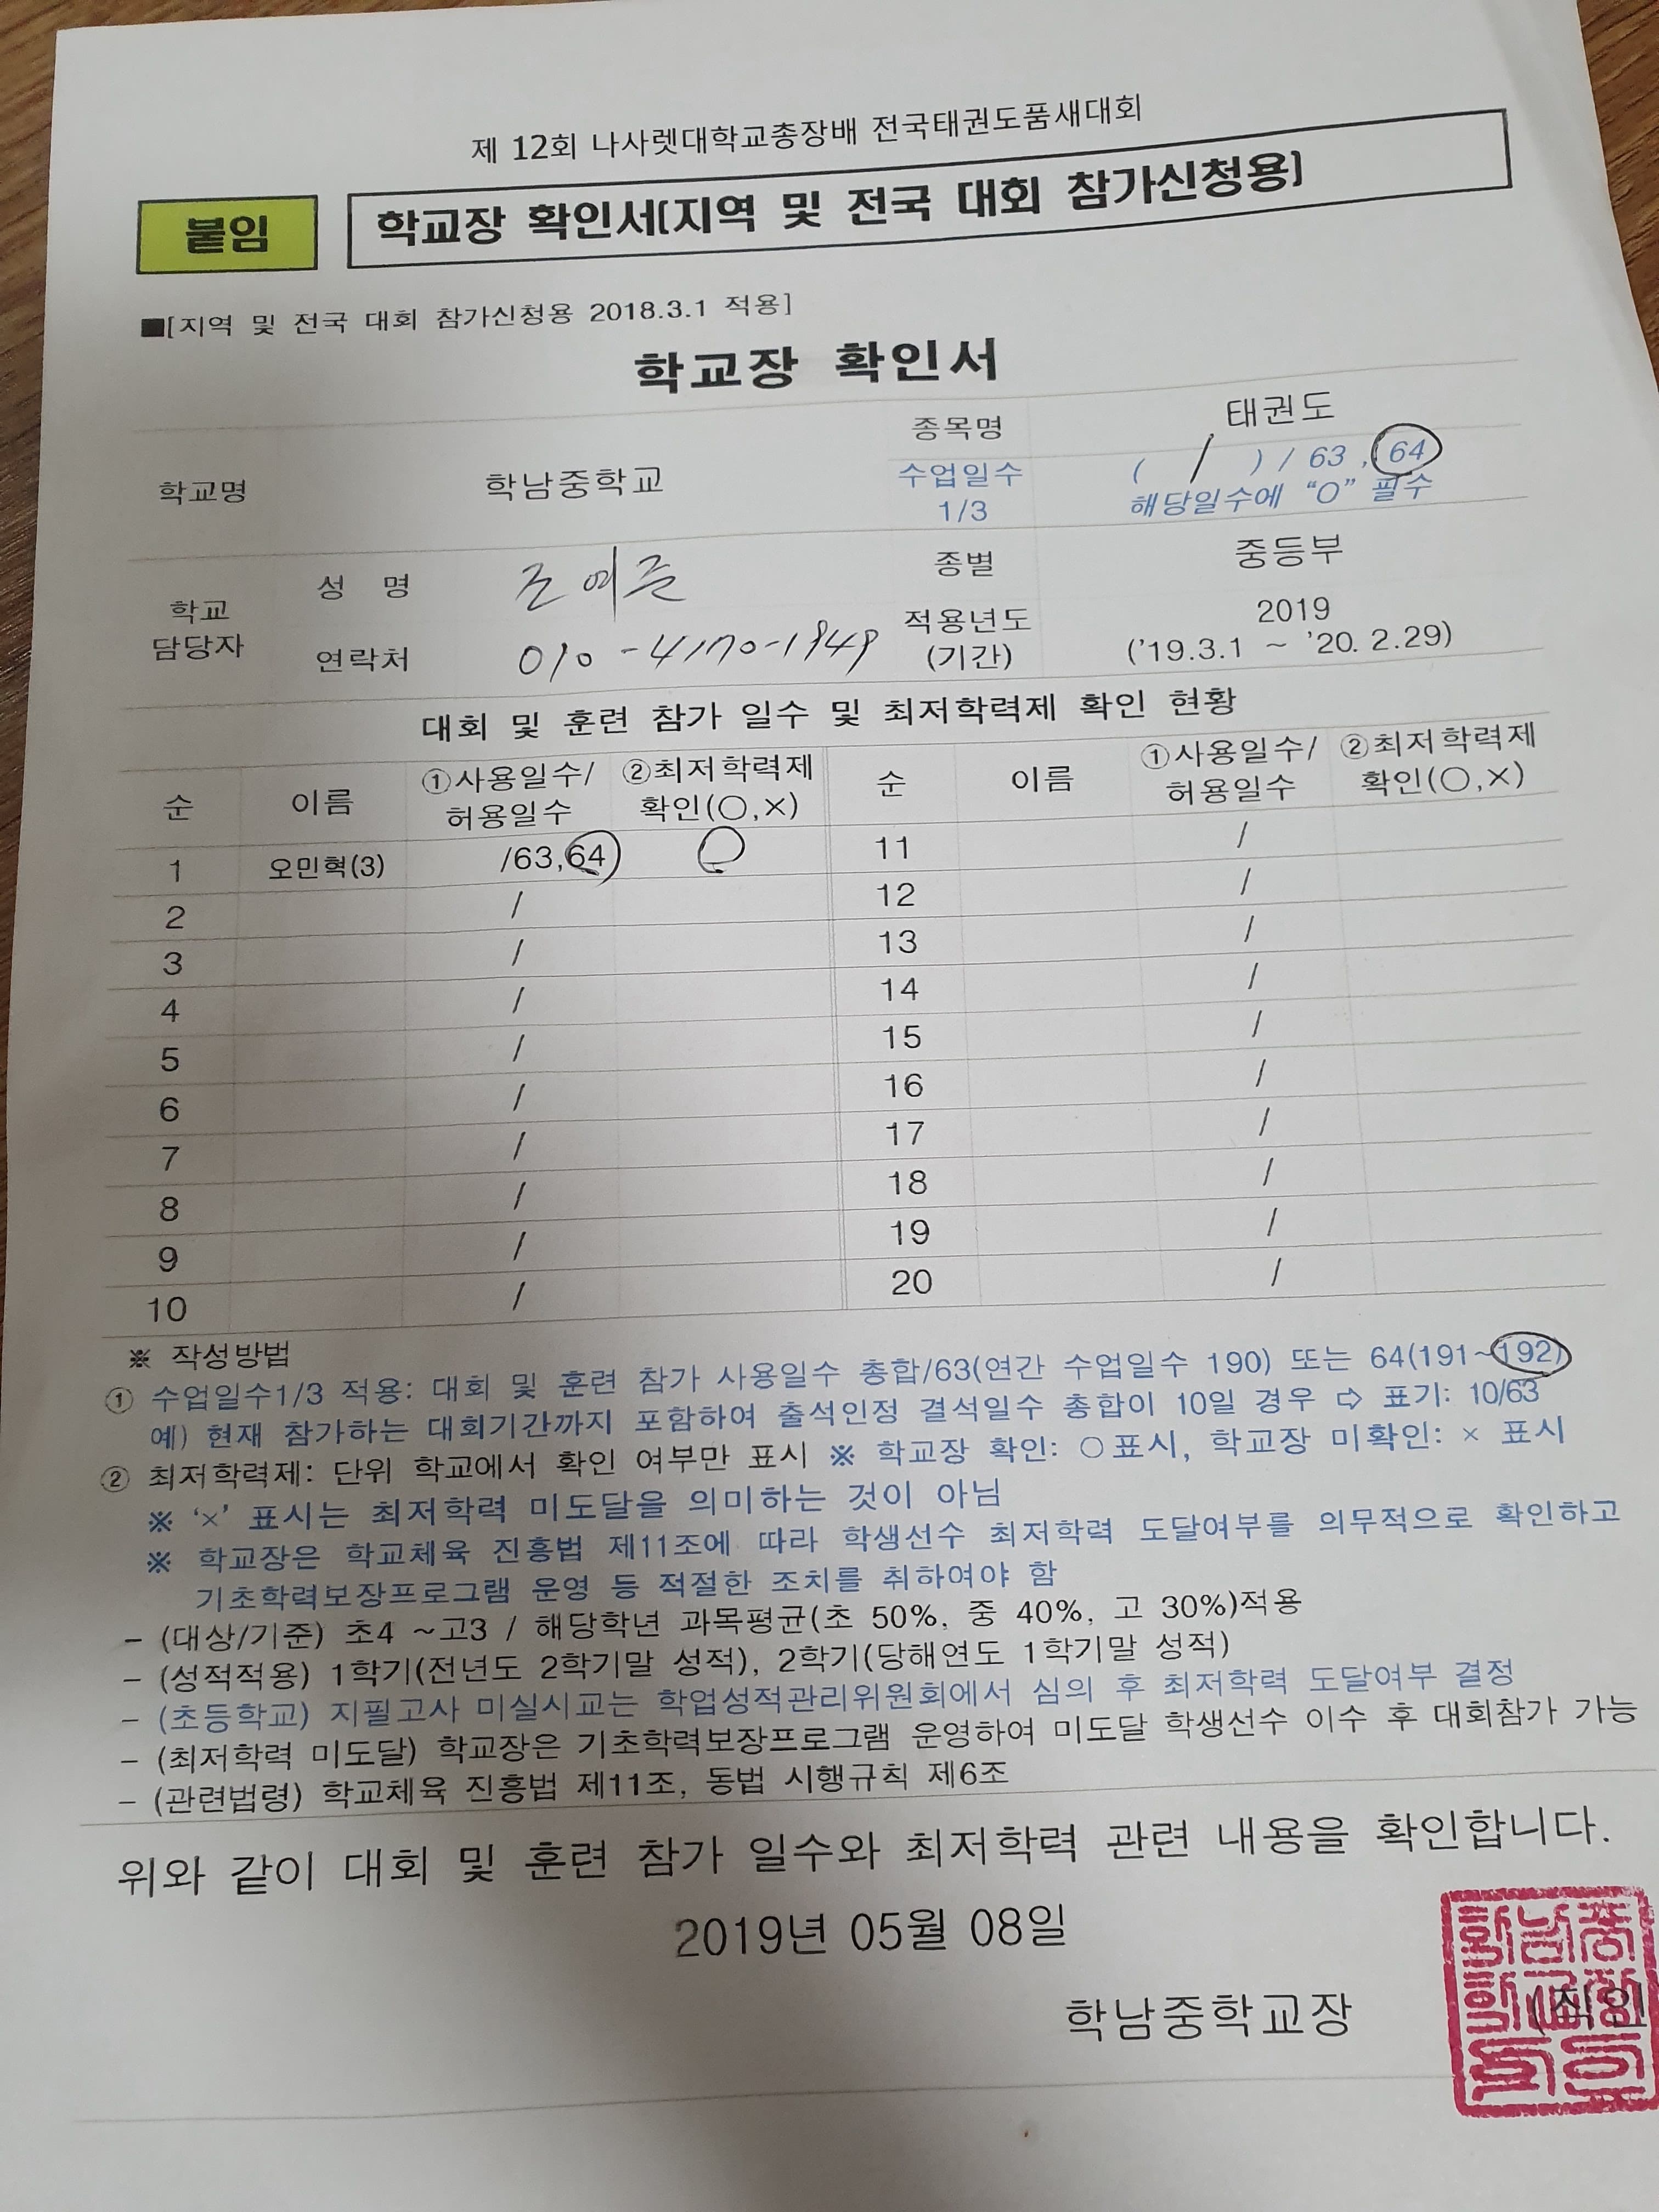 제 12회 나사렛대학교총장배 전국태권도품새대회
붙임
학교장 확인서[지역 및 전국 대회 참가신청용]
■[지역 및 전국 대회 참가신청용 2018.3.1 적용]
학교장 확인서
학교명 학남중학교 종목명 태권도
수업일수 1/3 ( / ) / 63 , 64
해당일수에 “O” 필수
학교 담당자 성 명 종별 중등부
연락처 010-4170-1949 적용년도 (기간) 2019
('19.3.1 ~ '20. 2.29)
대회 및 훈련 참가 일수 및 최저학력제 확인 현황
순 이름 ①사용일수/허용일수 ②최저학력제 확인(○,×) 순 이름 ①사용일수/허용일수 ②최저학력제 확인(○,×)
1 오민혁(3) /63,64 ○ 11 /
2 / 12 /
3 / 13 /
4 / 14 /
5 / 15 /
6 / 16 /
7 / 17 /
8 / 18 /
9 / 19 /
10 / 20 /
※ 작성방법
① 수업일수1/3 적용: 대회 및 훈련 참가 사용일수 총합/63(연간 수업일수 190) 또는 64(191~192)
예) 현재 참가하는 대회기간까지 포함하여 출석인정 결석일수 총합이 10일 경우 ⇨ 표기: 10/63
② 최저학력제: 단위 학교에서 확인 여부만 표시 ※ 학교장 확인: ○표시, 학교장 미확인: × 표시
※ ‘×’ 표시는 최저학력 미도달을 의미하는 것이 아님
※ 학교장은 학교체육 진흥법 제11조에 따라 학생선수 최저학력 도달여부를 의무적으로 확인하고
기초학력보장프로그램 운영 등 적절한 조치를 취하여야 함
- (대상/기준) 초4 ~고3 / 해당학년 과목평균(초 50%, 중 40%, 고 30%)적용
- (성적적용) 1학기(전년도 2학기말 성적), 2학기(당해연도 1학기말 성적)
- (초등학교) 지필고사 미실시교는 학업성적관리위원회에서 심의 후 최저학력 도달여부 결정
- (최저학력 미도달) 학교장은 기초학력보장프로그램 운영하여 미도달 학생선수 이수 후 대회참가 가능
- (관련법령) 학교체육 진흥법 제11조, 동법 시행규칙 제6조
위와 같이 대회 및 훈련 참가 일수와 최저학력 관련 내용을 확인합니다.
2019년 05월 08일
학남중학교장 (직인